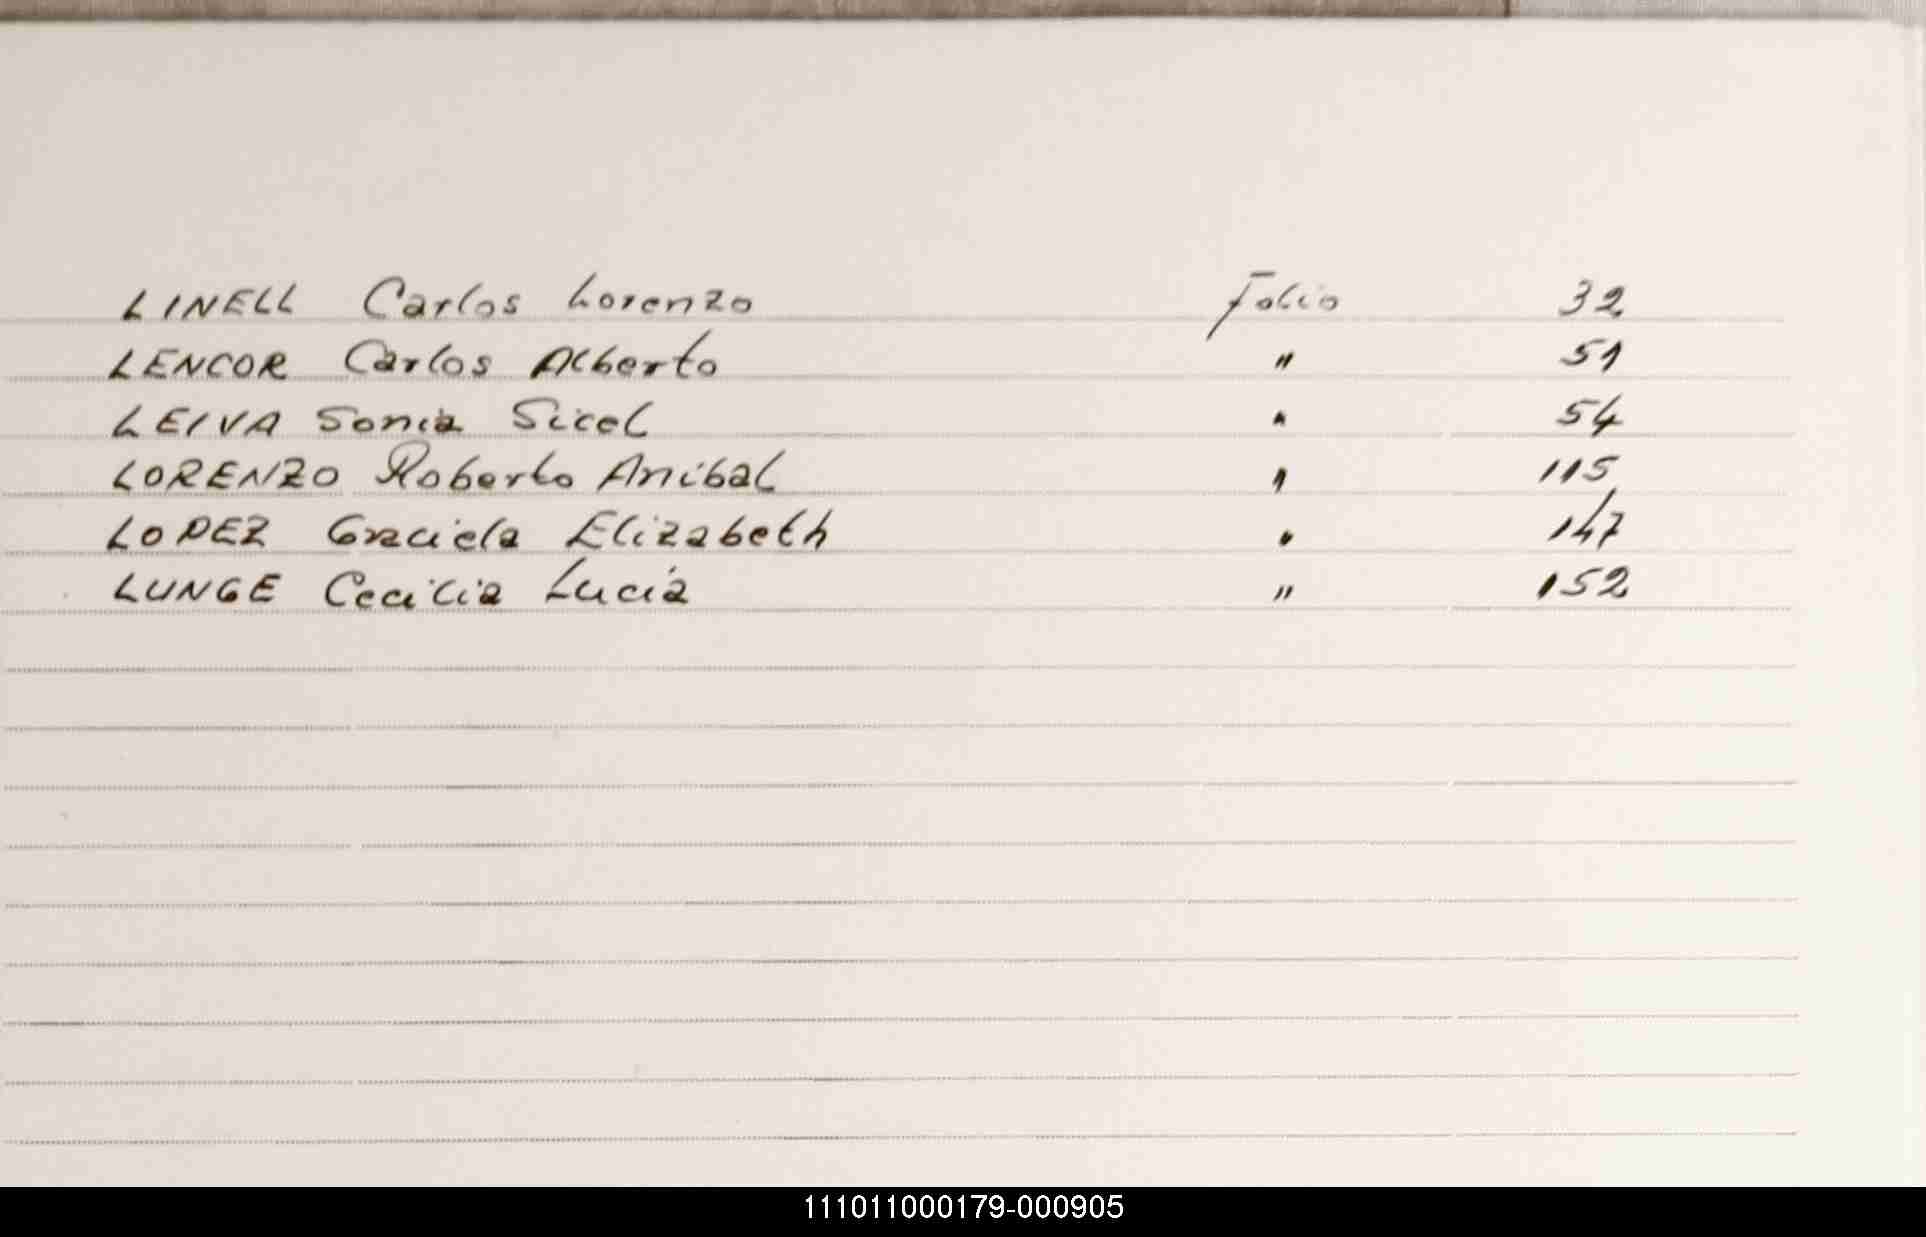 LINELL Carlos Lorenzo Folio 32
LENCOR Carlos Alberto " 51
LEIVA Sonia Sicel " 54
LORENZO Roberto Anibal " 115
LOPEZ Graciela Elizabeth " 147
LUNGE Cecilia Lucia " 152
111011000179-000905